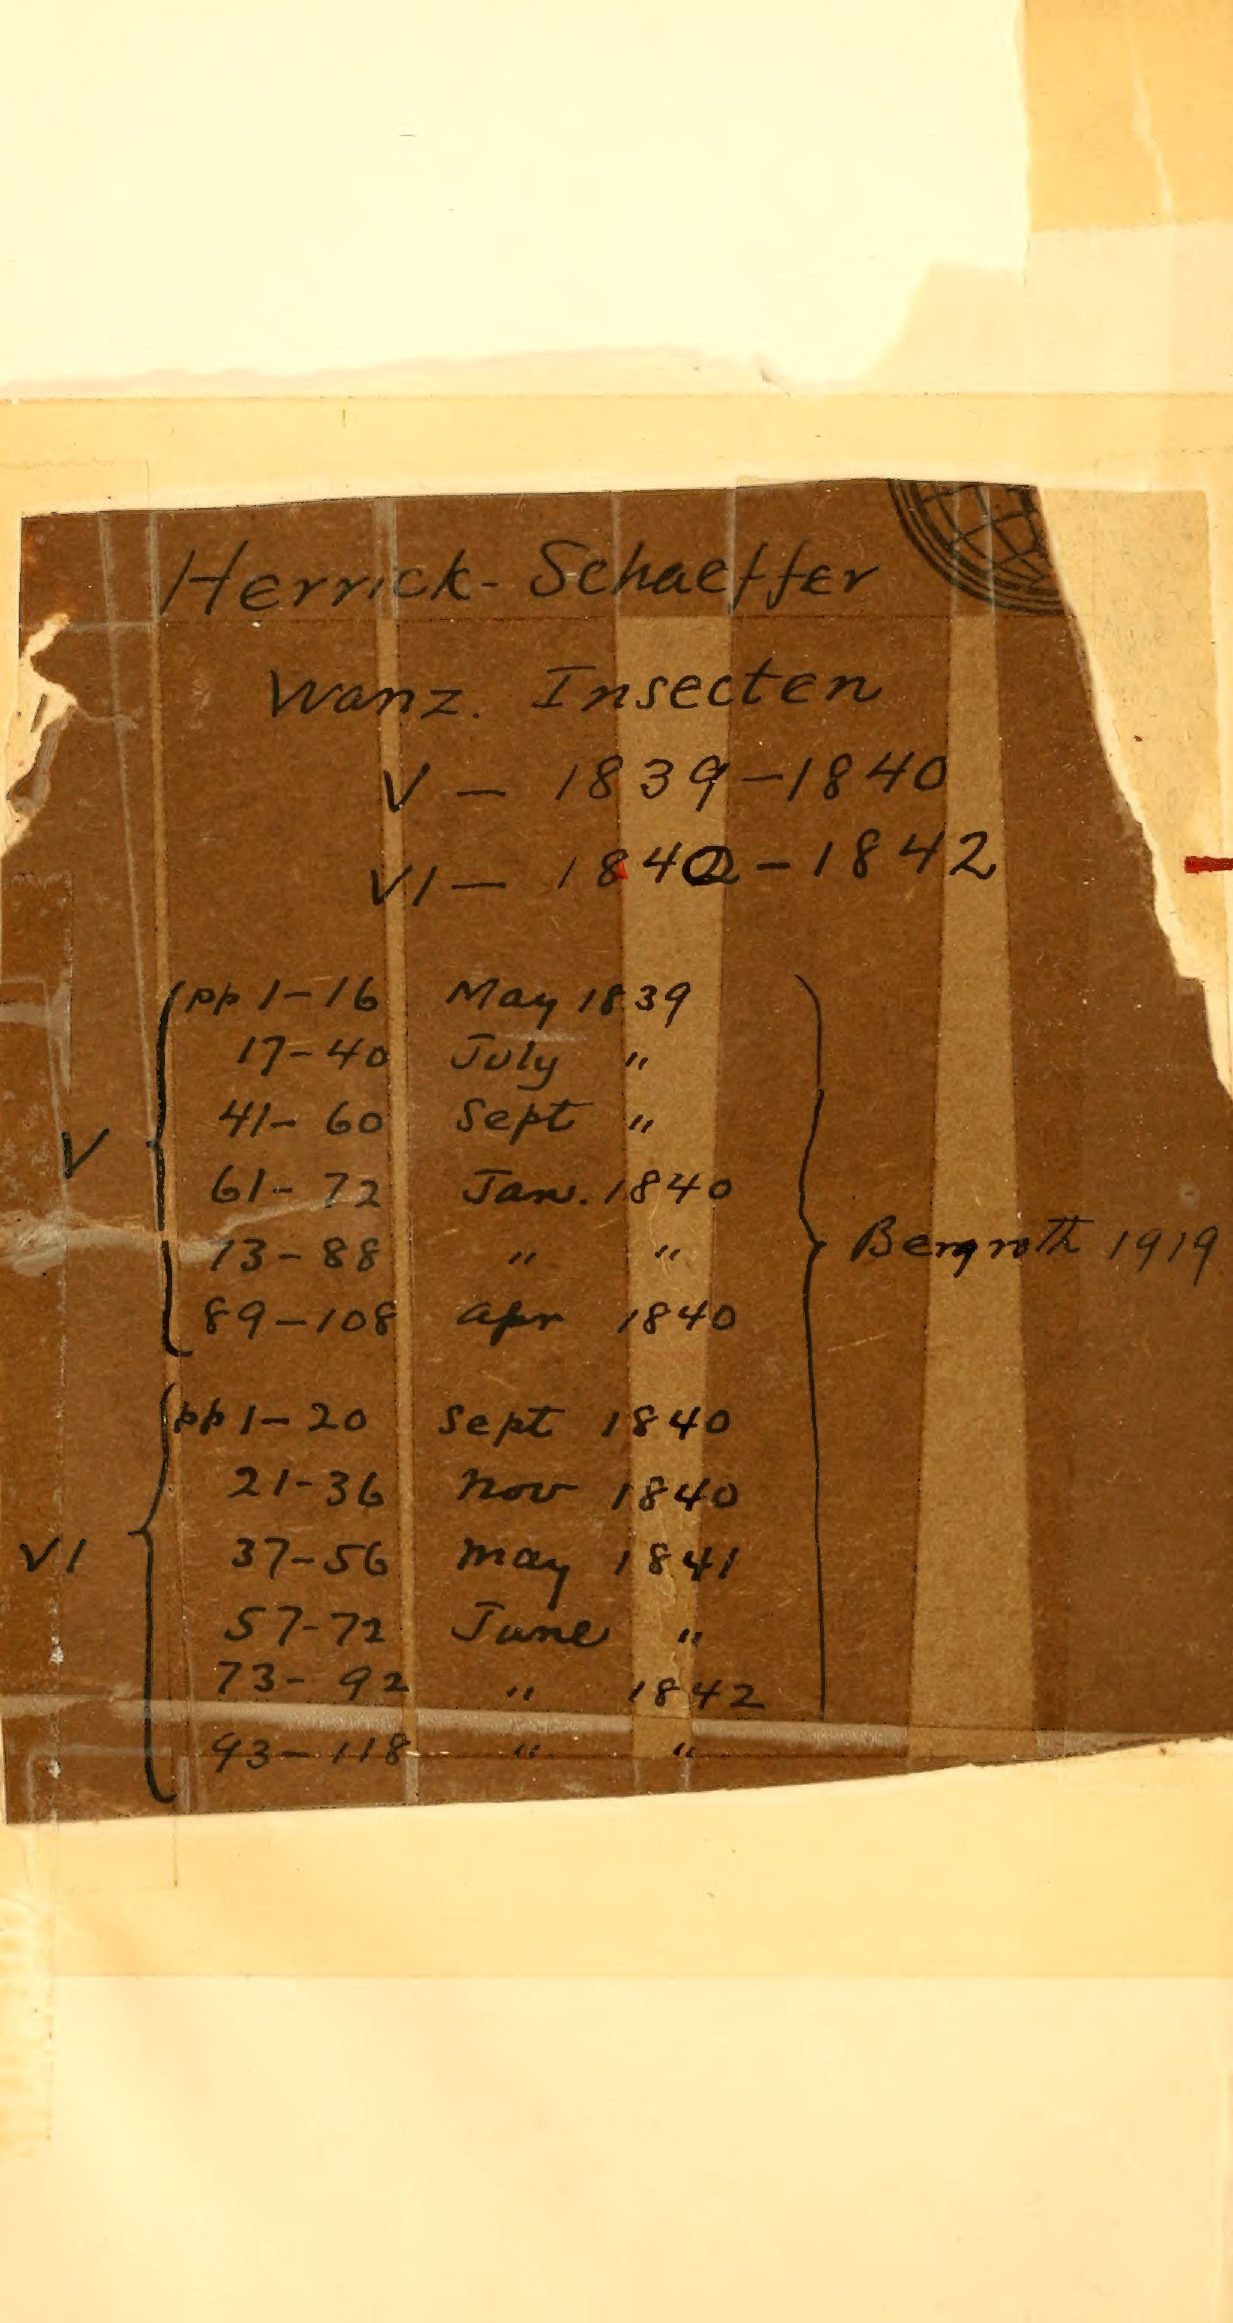 Herrick-Schaeffer
Wanz. Insecten
V — 1839-1840
VI — 1840-1842
V
pp 1-16 May 1839
17-40 July "
41-60 Sept "
61-72 Jan. 1840
73-88 " "
89-108 Apr 1840
Bergroth 1919
VI
pp 1-20 Sept 1840
21-36 Nov 1840
37-56 May 1841
57-72 June "
73-92 " 1842
93-118 " "